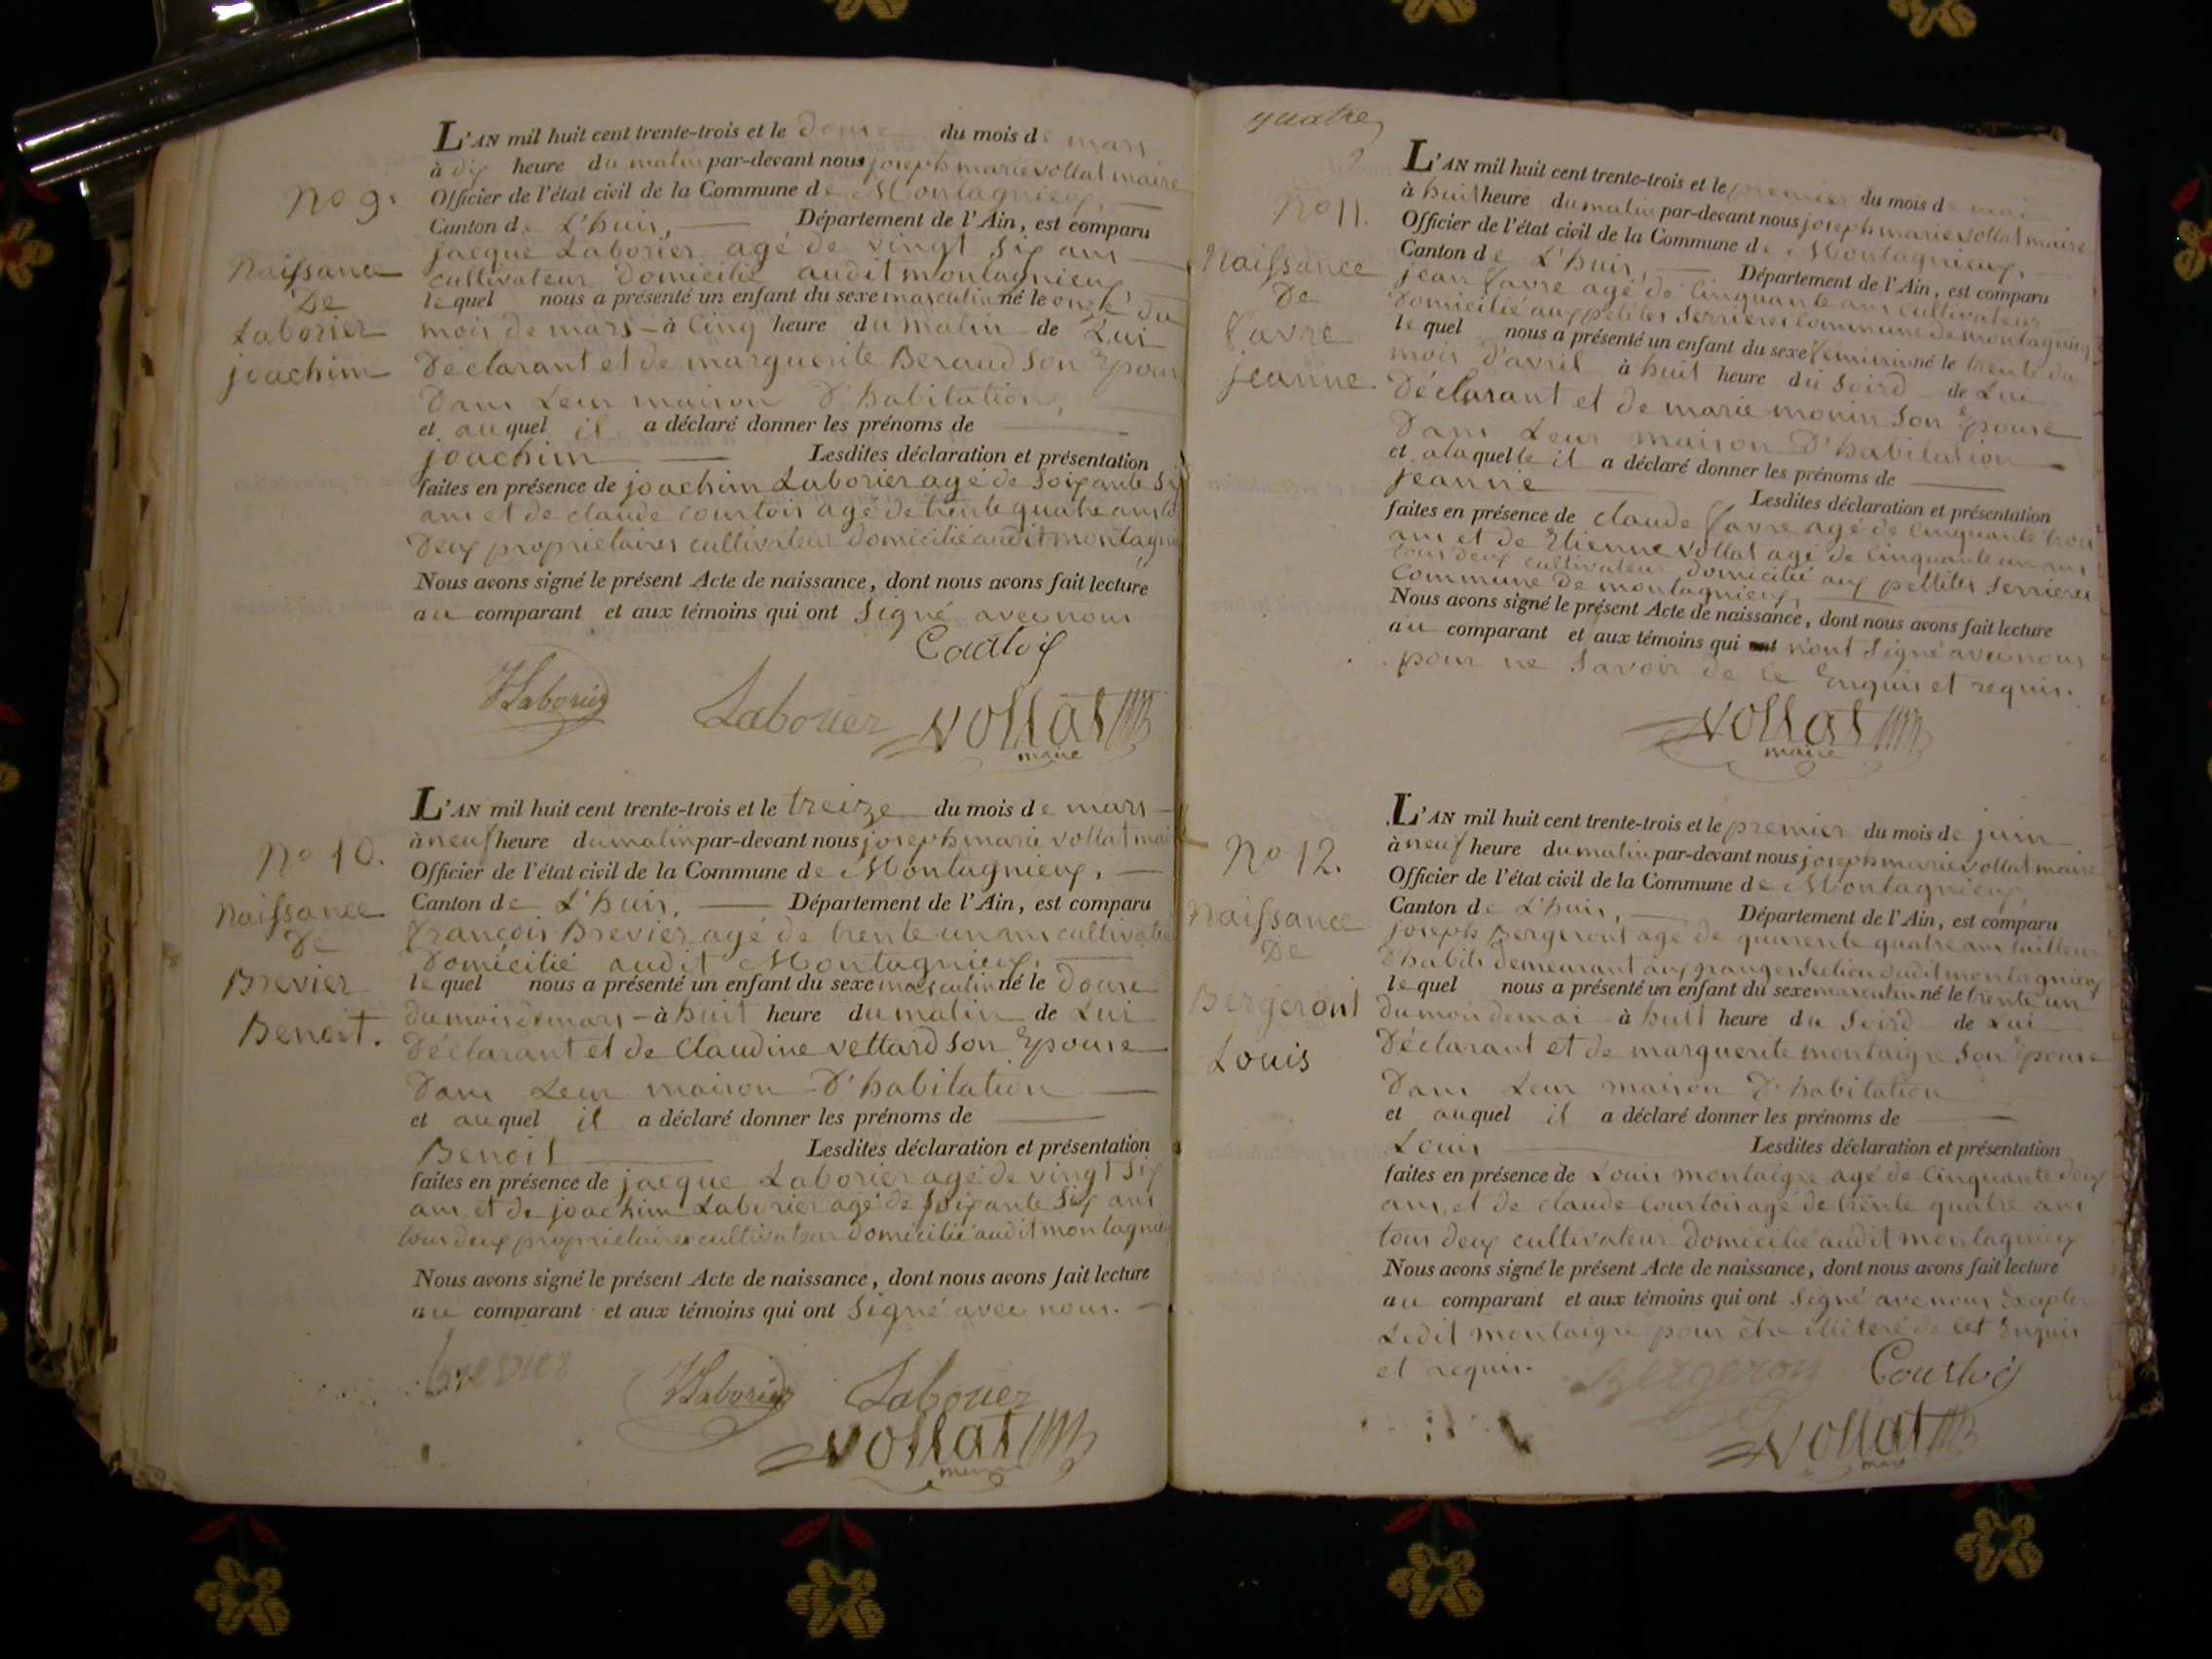 No 9.
Naissance
De
Laborier
joachim
L'AN mil huit cent trente-trois et le douze du mois de mars
à dix heure du matin par-devant nous joseph marie vollat maire
Officier de l'état civil de la Commune de Montagnieux,
Canton de L'huis, Département de l'Ain, est comparu
jacque Laborier agé de vingt six ans
cultivateur Domicilié audit montagnieux
lequel nous a présenté un enfant du sexe masculin né le onze du
mois de mars - à cinq heure du matin de Lui
Déclarant et de marguerite Beraud son Epouse
Dans Leur maison D'habitation,
et auquel il a déclaré donner les prénoms de
joachim Lesdites déclaration et présentation
faites en présence de joachim Laborier agé de soixante six
ans et de claude courtois agé de trente quatre ans
Deux proprietaires cultivateur domicilié audit montagnieux
Nous avons signé le présent Acte de naissance, dont nous avons fait lecture
au comparant et aux témoins qui ont signé avec nous
Laborier Labouer vollat
maire
No 10.
Naissance
De
Brevier
Benoit.
L'AN mil huit cent trente-trois et le treize du mois de mars
à neuf heure du matin par-devant nous joseph marie vollat mai
Officier de l'état civil de la Commune de Montagnieux,
Canton de L'huis, Département de l'Ain, est comparu
françois Brevier agé de trente un ans cultivateur
Domicilié audit Montagnieux,
lequel nous a présenté un enfant du sexe masculin né le douze
du mois de mars - à huit heure du matin de Lui
Déclarant et de Claudine vettard son Epouse
Dans Leur maison D'habitation
et auquel il a déclaré donner les prénoms de
Benoit Lesdites déclaration et présentation
faites en présence de jacque Laborier agé de vingt six
ans et de joachim Laborier agé de soixante six ans
tous deux proprietaires cultivateur domicilié audit montagnieux
Nous avons signé le présent Acte de naissance, dont nous avons fait lecture
au comparant et aux témoins qui ont signé avec nous.
brevier Laborier Labouer
vollat
quatre
No 11.
Naissance
De
favre
jeanne.
L'AN mil huit cent trente-trois et le premier du mois de mai
à huit heure du matin par-devant nous joseph marie vollat maire
Officier de l'état civil de la Commune de Montagnieux,
Canton de L'huis, Département de l'Ain, est comparu
jean favre agé de cinquante ans cultivateur
Domicilié aux petites serrieres commune de montagnieux
lequel nous a présenté un enfant du sexe féminin né le trente du
mois d'avril à huit heure du soird de Lui
Déclarant et de marie monin son Epouse
Dans Leur maison D'habitation
et alaquelle il a déclaré donner les prénoms de
jeanne Lesdites déclaration et présentation
faites en présence de claude favre agé de cinquante trois
ans et de Etienne vollat agé de cinquante un ans
tous deux cultivateur domicilié aux pettites serrieres
Commune de montagnieux,
Nous avons signé le présent Acte de naissance, dont nous avons fait lecture
au comparant et aux témoins qui ont n'ont signé avec nous
pour ne savoir de ce Enquis et requis.
vollat
maire
No 12.
Naissance
De
Bergeront
Louis
L'AN mil huit cent trente-trois et le premier du mois de juin
à neuf heure du matin par-devant nous joseph marie vollat maire
Officier de l'état civil de la Commune de Montagnieux,
Canton de L'huis, Département de l'Ain, est comparu
joseph Bergeront agé de quarente quatre ans tailleur
D'habits demeurant aux granges section dudit montagnieux
lequel nous a présenté un enfant du sexe masculin né le trente un
du mois de mai à huit heure du soird de Lui
Déclarant et de marguerite montaigre son Epouse
Dans Leur maison D'habitation
et auquel il a déclaré donner les prénoms de
Louis Lesdites déclaration et présentation
faites en présence de Louis montaigre agé de cinquante deux
ans, et de claude courtois agé de trente quatre ans
tous deux cultivateur domicilié audit montagnieux
Nous avons signé le présent Acte de naissance, dont nous avons fait lecture
au comparant et aux témoins qui ont signé avec nous Excepter
Ledit montaigre pour être illiteré de cet Enquis
et requis. Bergeron Courtois
vollat
maire